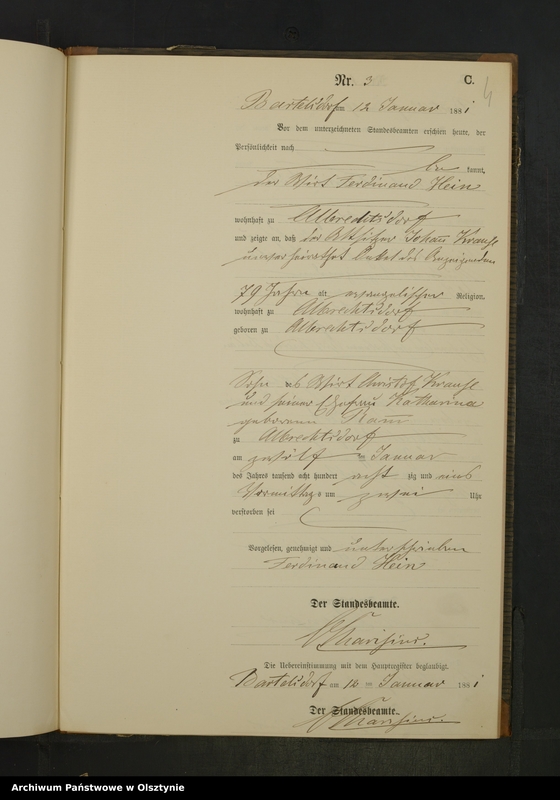 Nr. 3
C.
4
Bartelsdorf am 12 Januar 1881
Vor dem unterzeichneten Standesbeamten erschien heute, der
Persönlichkeit nach
be kannt,
der Wirt Ferdinand Hein
wohnhaft zu Albrechtsdorf
und zeigte an, daß der Altsitzer Johañ Krause
unverheirathet Onkel des Anzeigenden
79 Jahre alt evangelischer Religion,
wohnhaft zu Albrechtsdorf
geboren zu Albrechtsdorf
Sohn des Wirt Christof Krause
und seiner Ehefrau Katharina
geborenen
zu Albrechtsdorf
am zwölf ten Januar
des Jahres tausend acht hundert acht zig und eins
Vormittags um zwei Uhr
verstorben sei
Vorgelesen, genehmigt und unterschrieben
Ferdinand Hein
Der Standesbeamte.
Die Uebereinstimmung mit dem Hauptregister beglaubigt.
Bartelsdorf am 12 ten Januar 1881
Der Standesbeamte.
Archiwum Państwowe w Olsztynie